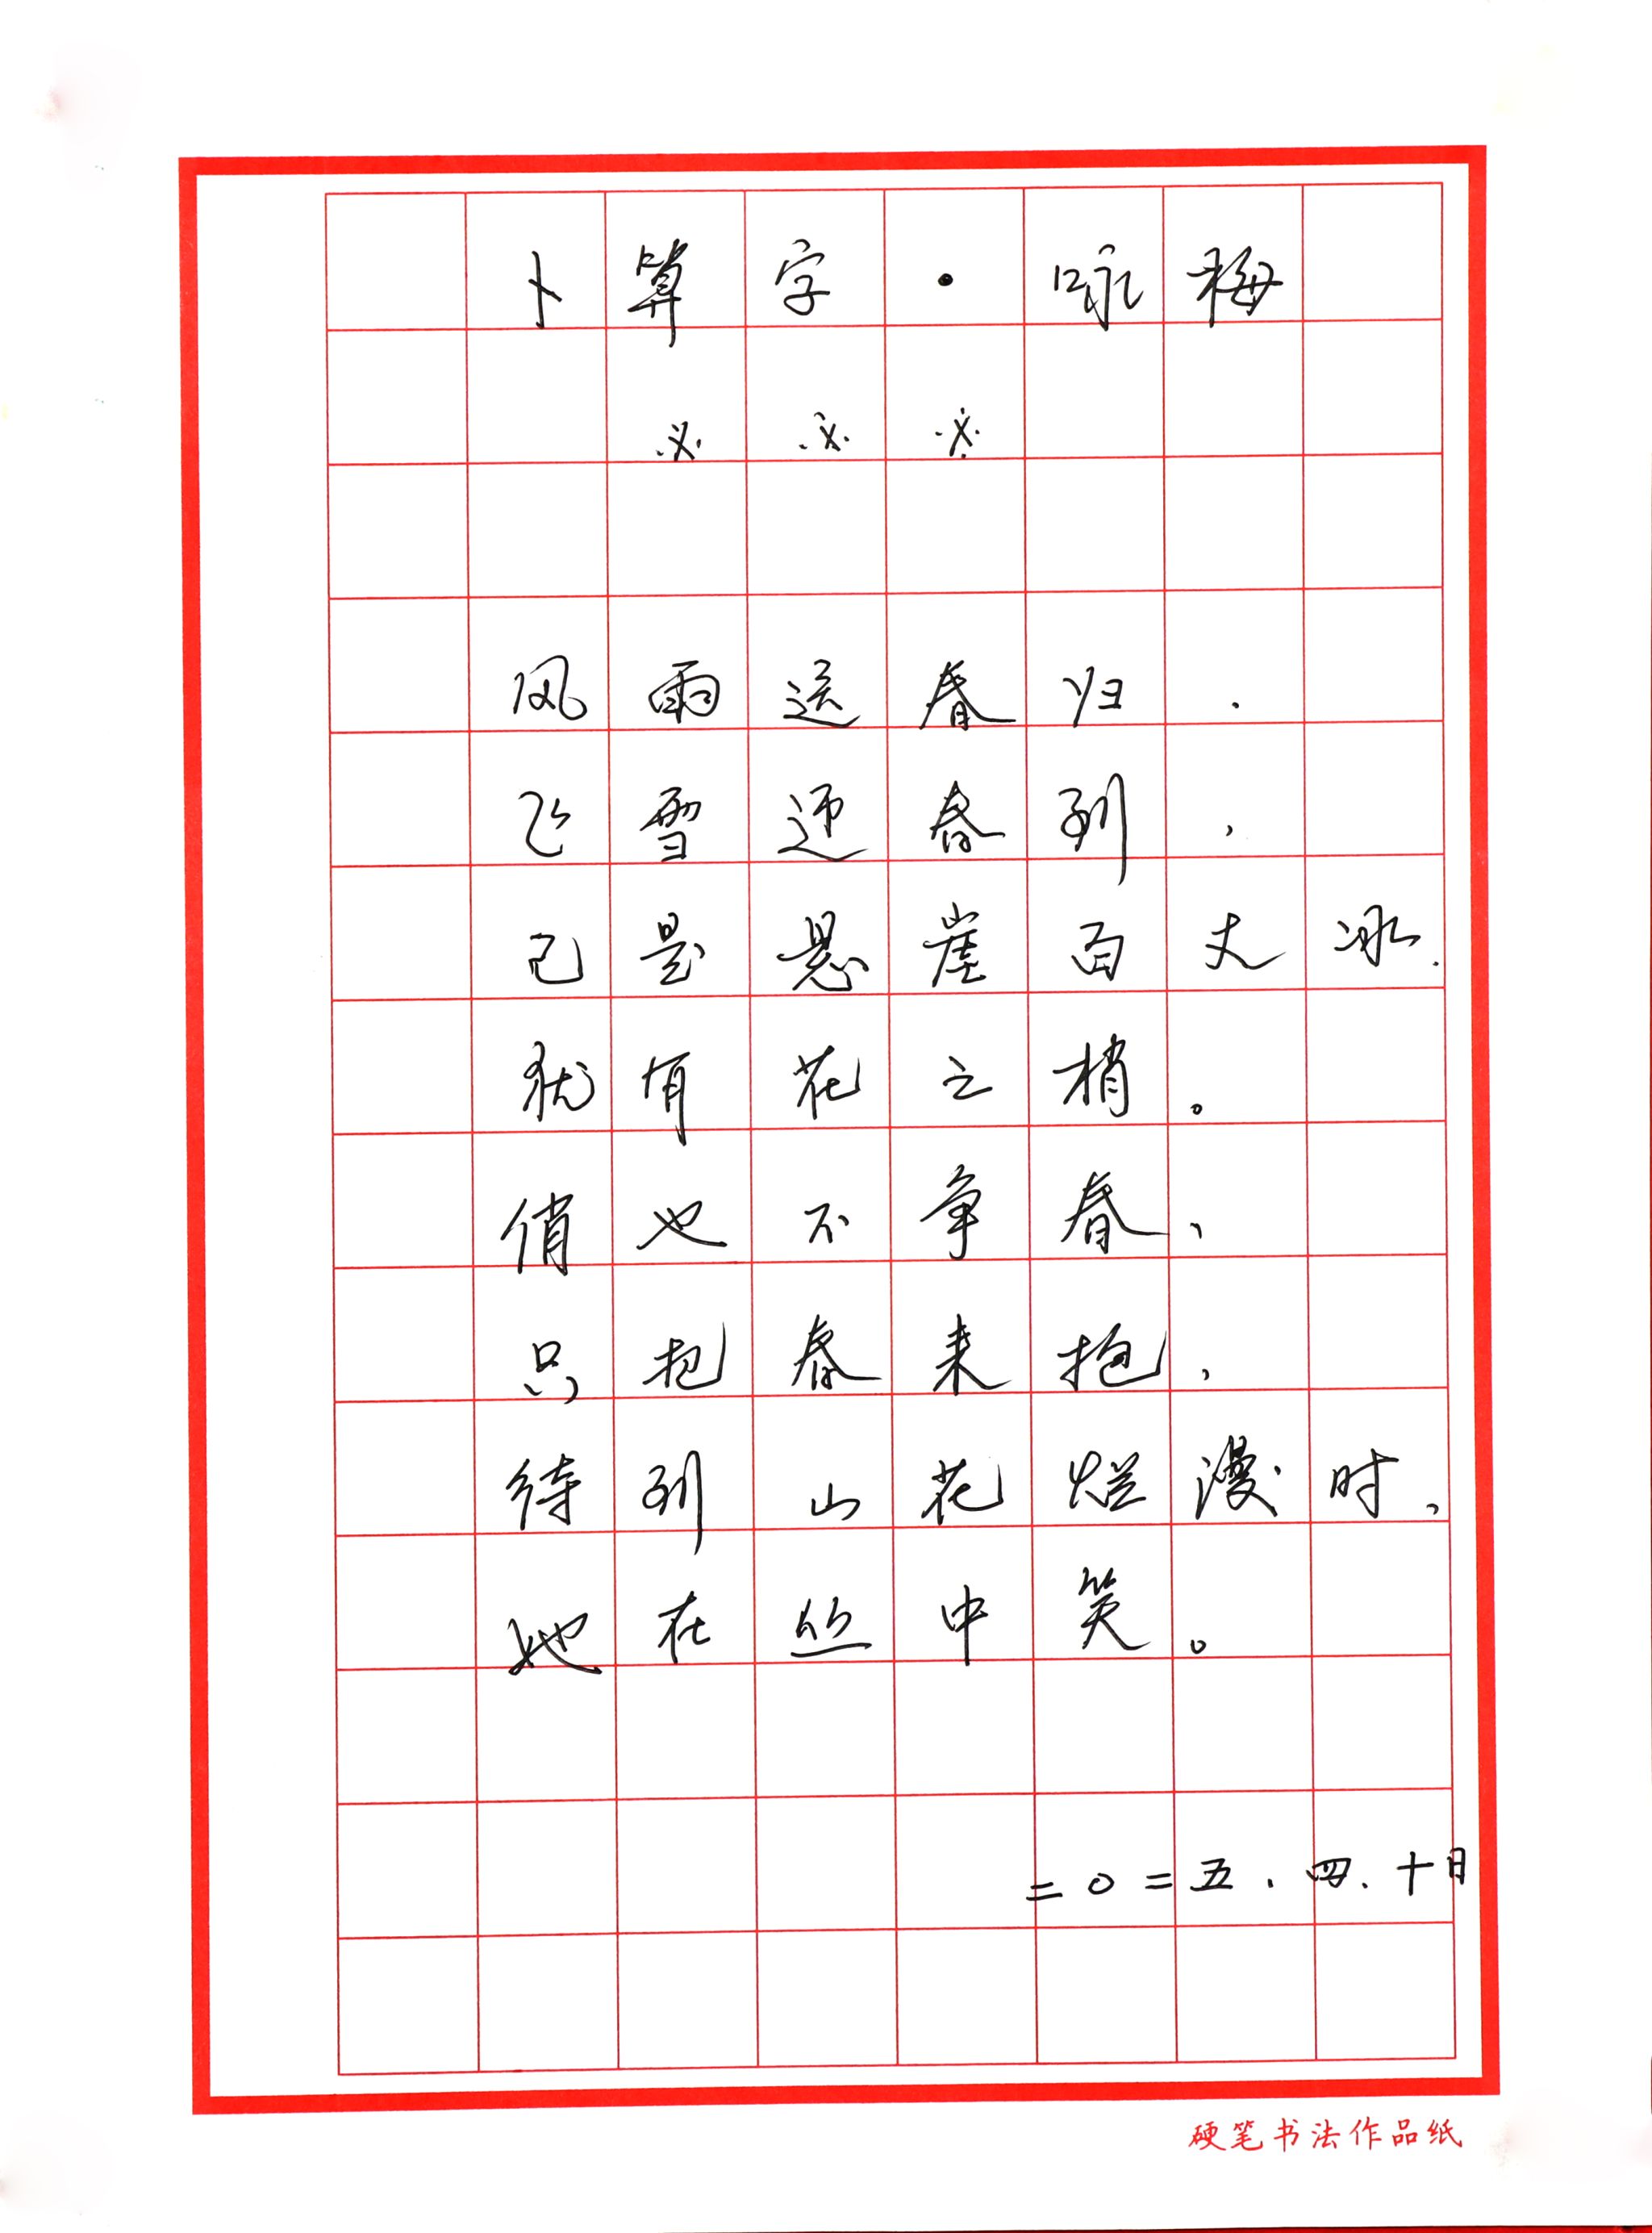 卜算字·咏梅
※ ※ ※
风雨送春归.
飞雪迎春到,
已是悬崖百丈冰.
犹有花之梢。
俏也不争春、
只把春来抱,
待到山花烂漫时,
她在丛中笑。
二〇二五.四.十日
硬笔书法作品纸